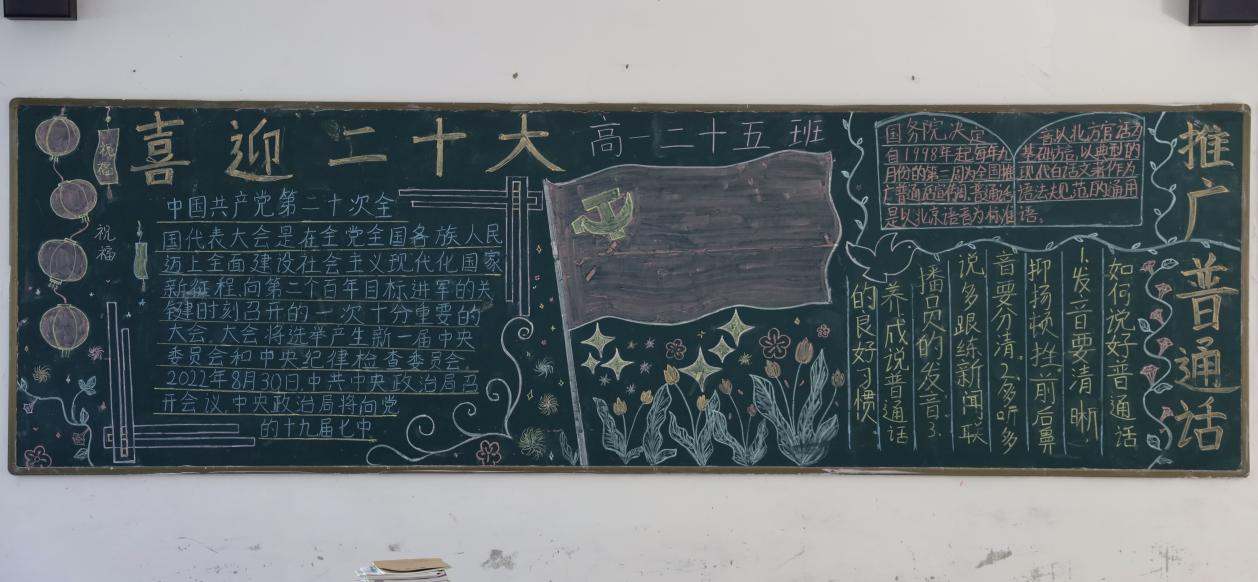 喜迎二十大
高一二十五班
祝福
祝福
中国共产党第二十次全
国代表大会是在全党全国各族人民
迈上全面建设社会主义现代化国家
新征程,向第二个百年目标进军的关
键时刻召开的一次十分重要的
大会,大会将选举产生新一届中央
委员会和中央纪律检查委员会。
2022年8月30日,中共中央政治局召
开会议,中央政治局将向党
的十九届七中
国务院决定
自1998年起,每年九
月份的第三周为全国推
广普通话宣传周,普通话
是以北京语音为标准
音以北方官话为
基础方言,以典型的
现代白话文著作为
语法规范的通用
语。
推广普通话
如何说好普通话
1.发音要清晰,
抑扬顿挫,前后鼻
音要分清.2.多听多
说多跟练新闻联
播员的发音.3.
养成说普通话
的良好习惯.